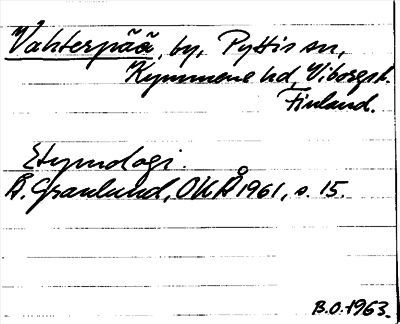 Vahterpää, by, Pyttis sn,
Kymmene hd, Viborgs l.
Finland.
Etymologi.
Å. Granlund, OUÅ 1961, s. 15.
B.O. 1963.